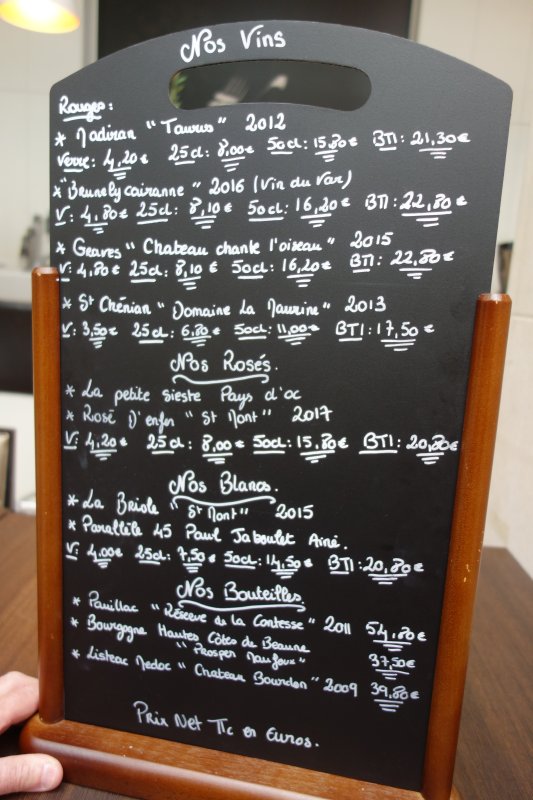 Nos Vins
Rouges:
* Madiran "Taurus" 2012
Verre: 4,20€ 25cl: 8,00€ 50cl: 15,80€ BTl: 21,30€
* "Brunely cairanne" 2016 (Vin du Var)
V: 4,80€ 25cl: 8,10€ 50cl: 16,20€ BTl: 22,80€
* Graves "Chateau chante l'oiseau" 2015
V: 4,80€ 25cl: 8,10€ 50cl: 16,20€ BTl: 22,80€
* St Chénian "Domaine La Maurine" 2013
V: 3,50€ 25cl: 6,80€ 50cl: 11,00€ BTl: 17,50€
Nos Rosés.
* La petite sieste Pays d'oc
* Rosé D'enfer "St Mont" 2017
V: 4,20€ 25cl: 8,00€ 50cl: 15,80€ BTl: 20,80€
Nos Blancs.
* La Briole "St Mont" 2015
* Parallèle 45 Paul Jaboulet Ainé.
V: 4,00€ 25cl: 7,50€ 50cl: 14,50€ BTl: 20,80€
Nos Bouteilles
* Pauillac "Réserve de la Contesse" 2011 54,80€
* Bourgogne Hautes Côtes de Beaune
"Prosper Maufoux" 37,50€
* Listrac Medoc "Chateau Bourdon" 2009 39,80€
Prix Net TTc en Euros.